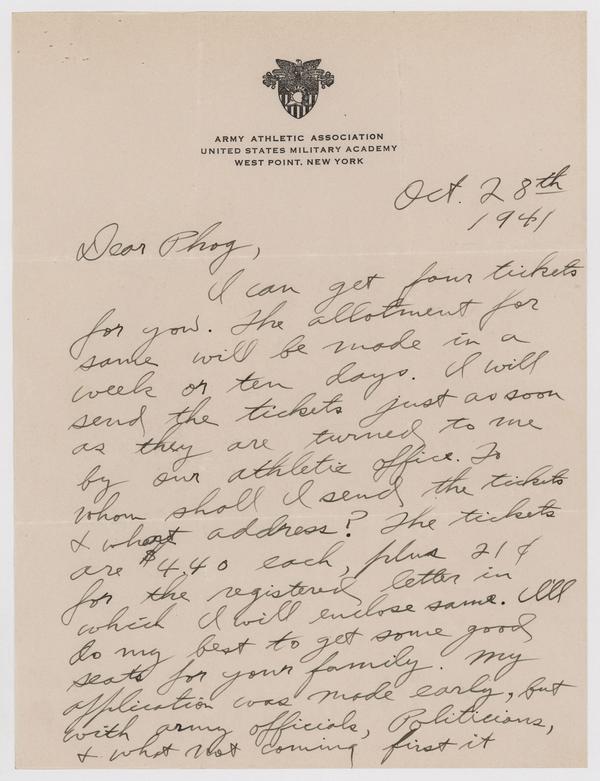 ARMY ATHLETIC ASSOCIATION
UNITED STATES MILITARY ACADEMY
WEST POINT, NEW YORK
Oct. 28th
1941
Dear Phog,
I can get four tickets
for you. The allotment for
same will be made in a
week or ten days. I will
send the tickets just as soon
as they are turned to me
by our athletic office. To
whom shall I send the tickets
& what address? The tickets
are $4.40 each, plus 21¢
for the registered letter in
which I will enclose same. I'll
do my best to get some good
seats for your family. My
application was made early, but
with army officials, Politicians,
& what not coming first it